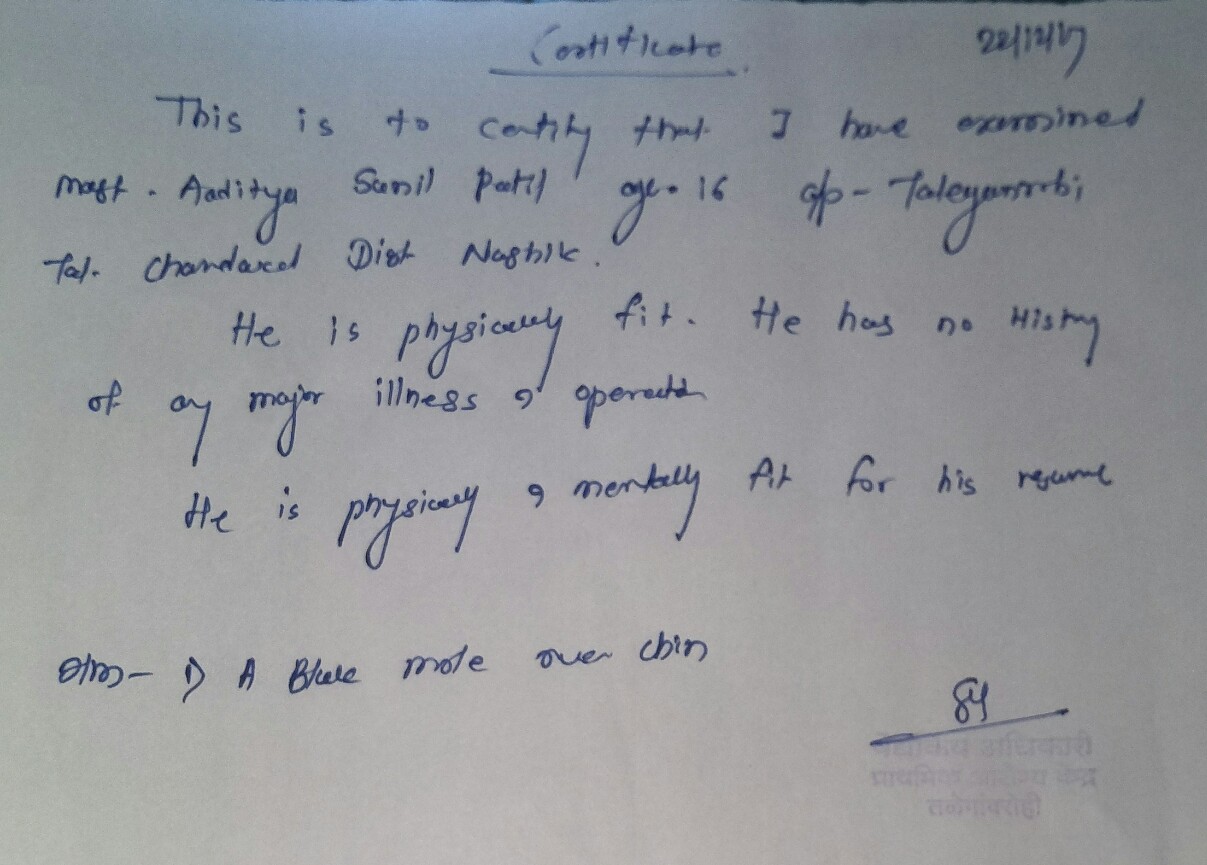 Certificate 22/12/17
This is to certify that I have examined
Mast. Aaditya Sunil Patil age. 16
Tal. Chandavad Dist Nashik.
He is physically fit. He has no History
of any major illness operation
He is physically mentally fit for his resume
1) A Black mole over chin
वैद्यकीय अधिकारी
प्राथमिक आरोग्य केंद्र
तळेगांवरोही